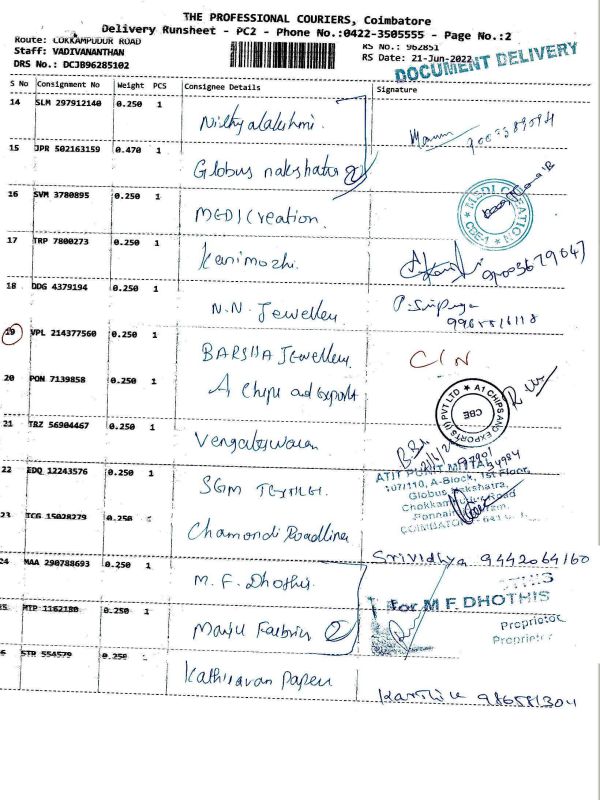 THE PROFESSIONAL COURIERS, Coimbatore
Delivery Runsheet - PC2 - Phone No.:0422-3505555 - Page No.:2
Route: COKKAMPUDUR ROAD
Staff: VADIVANANTHAN
DRS No.: DCJB96285102
RS No.: 962851
RS Date: 21-Jun-2022
DOCUMENT DELIVERY
S No Consignment No Weight PCS Consignee Details Signature
14 SLM 297912140 0.250 1
Nithyalakshmi.
15 JPR 502163159 0.470 1
Globus nakshatra 2
16 SVM 3780895 0.250 1
MEDI Creation.
MEDI CREATION
CBE-1
17 TRP 7800273 0.250 1
Kanimozhi.
18 DDG 4379194 0.250 1
N.N. Jewellery
19 VPL 214377560 0.250 1
BARSHA Jewellery
C/N
20 PON 7139858 0.250 1
A Chips and Exports
A1 CHIPS AND EXPORTS (I) PVT LTD
CBE
21 TRZ 56904467 0.250 1
Vengateswaran
22 EDQ 12243576 0.250 1
SGM Textiles.
ATIT PUNIT MITTAL
107/110, A-Block, 1st Floor,
Globus Nakshatra,
Road
COIMBATORE
23 TCG 15028279 0.250
Chamondi Roadline
Srividhya 9442064160
24 MAA 290788693 0.250 1
M. F. Dhothis.
For M F DHOTHIS
Proprietor
Proprietor
MTP 1162180 0.250 1
Manju Fabrics 2
STR 554579 0.250
Kathiravan Papers
Karthik 986581304